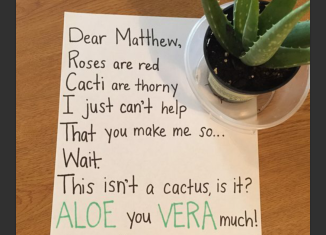 Dear Matthew,
Roses are red
Cacti are thorny
I just can't help
That you make me so...
Wait.
This isn't a cactus, is it?
ALOE you VERA much!